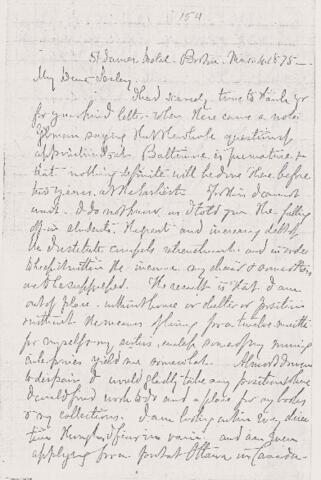 154
St James Hotel - Boston - March 4 1875 -
My Dear Henley
I had scarcely time to thank you
for your kind letter when there came a note
from saying that the whole question of
appointments at Baltimore is premature &
that nothing definite will be done there before
two years, at the earliest. For this I cannot
wait. I do not know, as I told you the falling
off in students, the great and increasing debt of
the Institute compels retrenchment and in order
to keep it within the income my chair & some others
will be suppressed. The result is that I am
out of place - without house or shelter or position
without the means of living for a twelve month
for myself or my series, unless some of my mining
enterprises yield me somewhat. Almost driven
to despair I would gladly take any position where
I could find work to do and a place for my books
& my collections. I am looking in every direc
tion though I fear in vain. and am even
applying for a post at Ottawa in Canada -